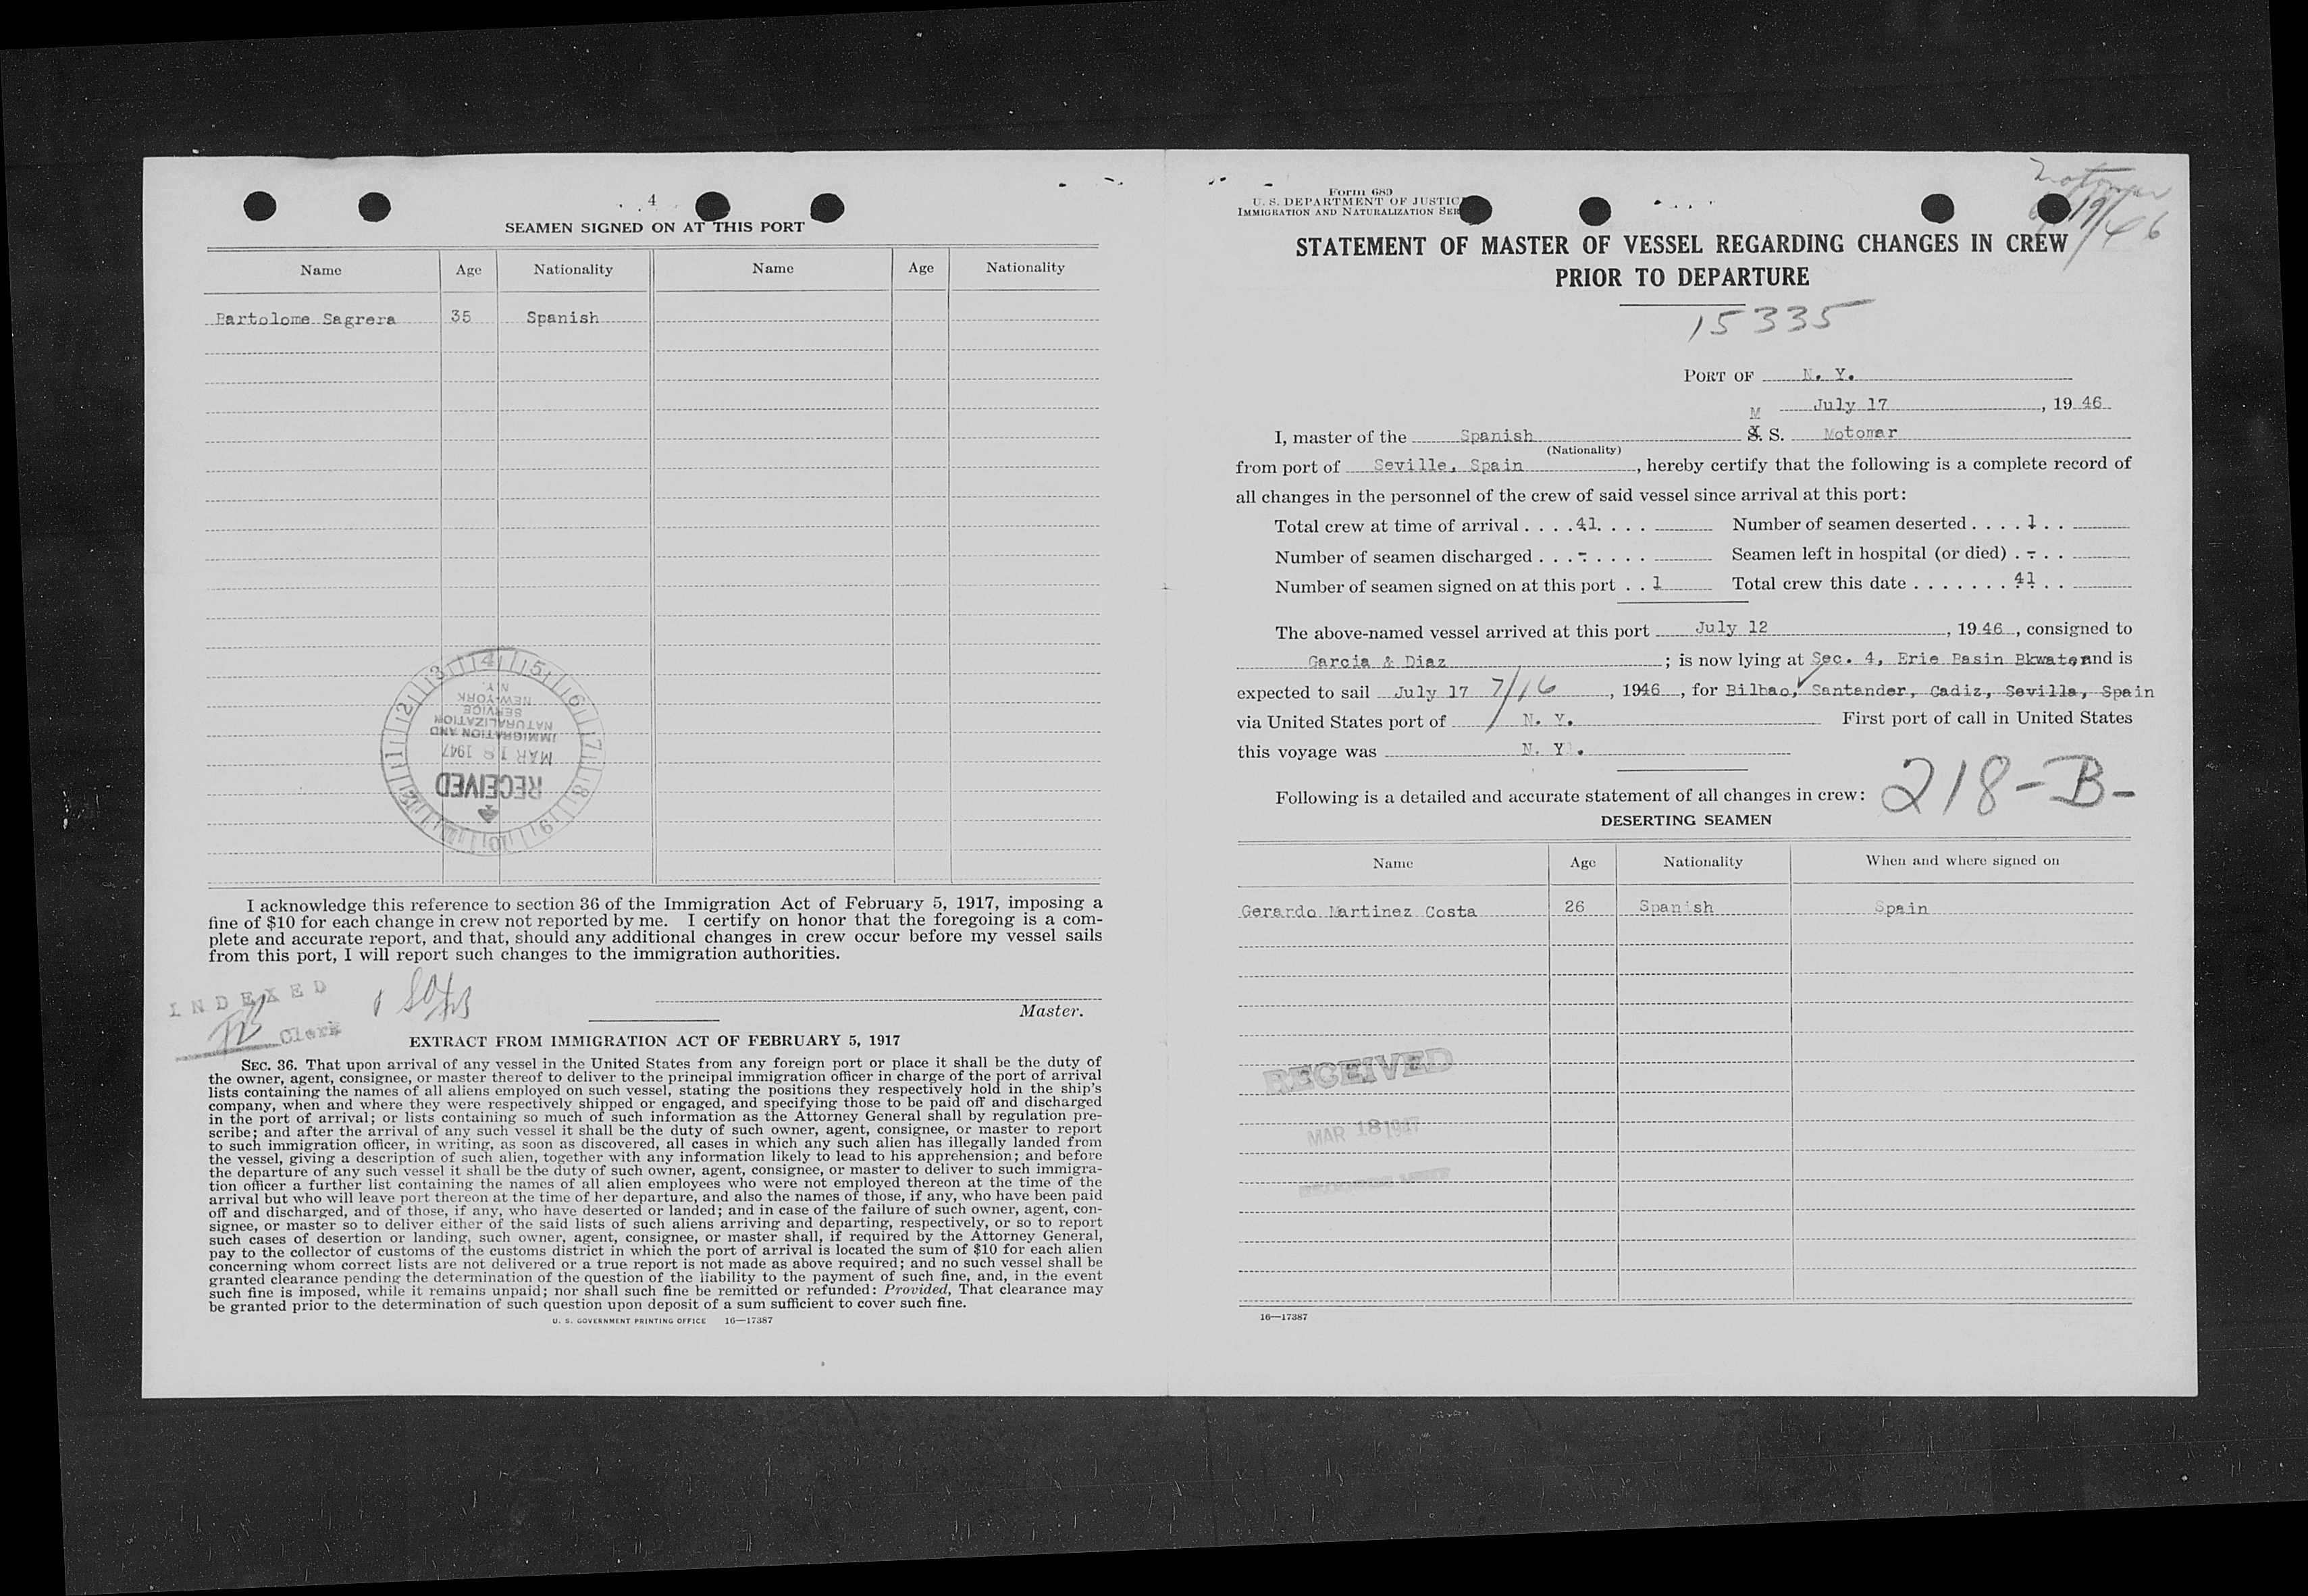 4
SEAMEN SIGNED ON AT THIS PORT
Name Age Nationality Name Age Nationality
Bartolome Sagrera 35 Spanish
1 2 3 4 5 6 7 8 9 10 11 12
RECEIVED
MAR 18 1947
IMMIGRATION AND
NATURALIZATION
SERVICE
NEW YORK
N.Y.
I acknowledge this reference to section 36 of the Immigration Act of February 5, 1917, imposing a
fine of $10 for each change in crew not reported by me. I certify on honor that the foregoing is a com-
plete and accurate report, and that, should any additional changes in crew occur before my vessel sails
from this port, I will report such changes to the immigration authorities.
INDEXED
Clerk
Master.
EXTRACT FROM IMMIGRATION ACT OF FEBRUARY 5, 1917
SEC. 36. That upon arrival of any vessel in the United States from any foreign port or place it shall be the duty of
the owner, agent, consignee, or master thereof to deliver to the principal immigration officer in charge of the port of arrival
lists containing the names of all aliens employed on such vessel, stating the positions they respectively hold in the ship's
company, when and where they were respectively shipped or engaged, and specifying those to be paid off and discharged
in the port of arrival; or lists containing so much of such information as the Attorney General shall by regulation pre-
scribe; and after the arrival of any such vessel it shall be the duty of such owner, agent, consignee, or master to report
to such immigration officer, in writing, as soon as discovered, all cases in which any such alien has illegally landed from
the vessel, giving a description of such alien, together with any information likely to lead to his apprehension; and before
the departure of any such vessel it shall be the duty of such owner, agent, consignee, or master to deliver to such immigra-
tion officer a further list containing the names of all alien employees who were not employed thereon at the time of the
arrival but who will leave port thereon at the time of her departure, and also the names of those, if any, who have been paid
off and discharged, and of those, if any, who have deserted or landed; and in case of the failure of such owner, agent, con-
signee, or master so to deliver either of the said lists of such aliens arriving and departing, respectively, or so to report
such cases of desertion or landing, such owner, agent, consignee, or master shall, if required by the Attorney General,
pay to the collector of customs of the customs district in which the port of arrival is located the sum of $10 for each alien
concerning whom correct lists are not delivered or a true report is not made as above required; and no such vessel shall be
granted clearance pending the determination of the question of the liability to the payment of such fine, and, in the event
such fine is imposed, while it remains unpaid; nor shall such fine be remitted or refunded: Provided, That clearance may
be granted prior to the determination of such question upon deposit of a sum sufficient to cover such fine.
U. S. GOVERNMENT PRINTING OFFICE 16—17387
Form 689
U. S. DEPARTMENT OF JUSTIC
IMMIGRATION AND NATURALIZATION SER
Motomar
19/46
STATEMENT OF MASTER OF VESSEL REGARDING CHANGES IN CREW
PRIOR TO DEPARTURE
15335
PORT OF N. Y.
July 17, 19 46
I, master of the Spanish M S. S. Motomar
(Nationality)
from port of Seville, Spain, hereby certify that the following is a complete record of
all changes in the personnel of the crew of said vessel since arrival at this port:
Total crew at time of arrival . . . . 41 . . . . Number of seamen deserted . . . . 1 . .
Number of seamen discharged . . . - . . . . . Seamen left in hospital (or died) . - . .
Number of seamen signed on at this port . . 1 Total crew this date . . . . . . . 41 . .
The above-named vessel arrived at this port July 12, 19 46, consigned to
Garcia & Diaz; is now lying at Sec. 4, Erie Basin Bkwater and is
expected to sail July 17 7/16, 1946, for Bilbao, Santander, Cadiz, Sevilla, Spain
via United States port of N. Y. First port of call in United States
this voyage was N. Y.
Following is a detailed and accurate statement of all changes in crew: 218-B-
DESERTING SEAMEN
Name Age Nationality When and where signed on
Gerardo Martinez Costa 26 Spanish Spain
RECEIVED
MAR 18 1947
16—17387